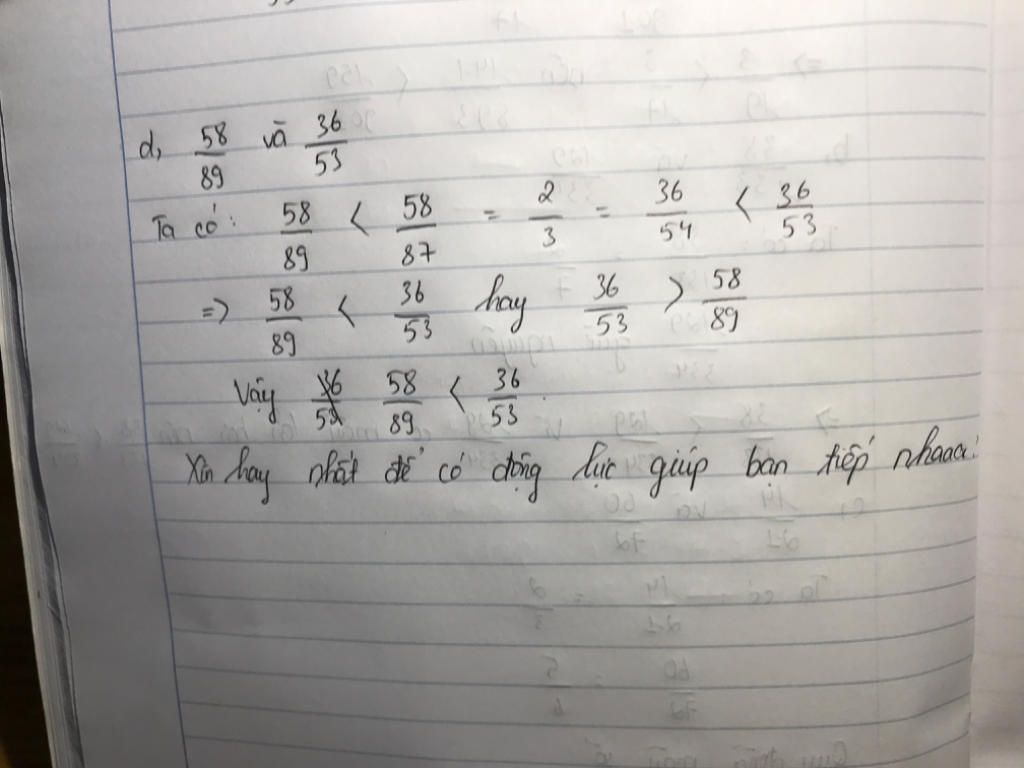 d, 58/89 và 36/53
Ta có: 58/89 < 58/87 = 2/3 = 36/54 < 36/53
=> 58/89 < 36/53 hay 36/53 > 58/89
Vậy 58/89 < 36/53.
Xin hay nhất để có động lực giúp bạn tiếp nhaaa!